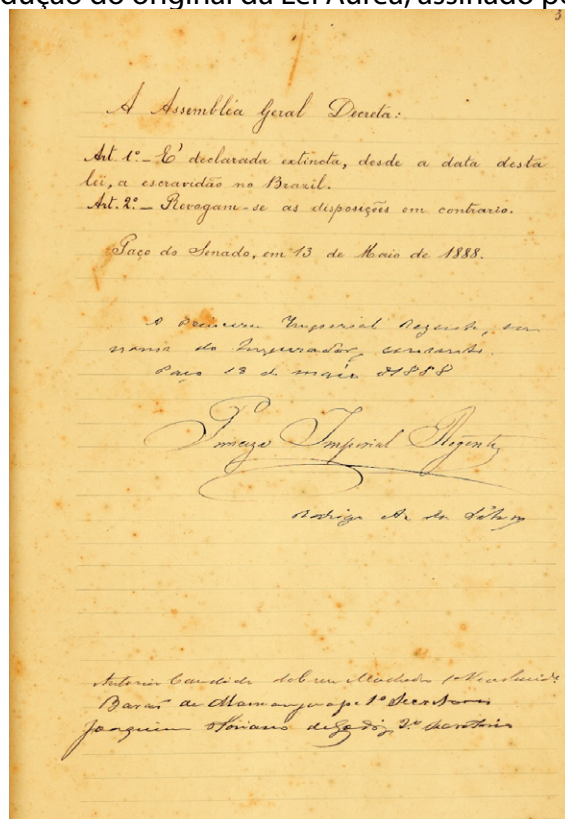 dução do original da Lei Áurea, assinado p
3
A Assembléa Geral Decreta:
Art. 1º_ E' declarada extincta, desde a data desta
lei, a escravidão no Brazil.
Art. 2º_ Revogam-se as disposições em contrario.
Paço do Senado, em 13 de Maio de 1888.
A Princesa Imperial Regente, em
nome do Imperador, consente.
Paço 13 de maio d1888
Princeza Imperial Regente
Rodrigo A. da Silva
Antonio Candido da Cruz Machado 1º Vice
Barão de Mamanguape 1º Secretario
Joaquim Floriano de Godoy, 2º Secretario